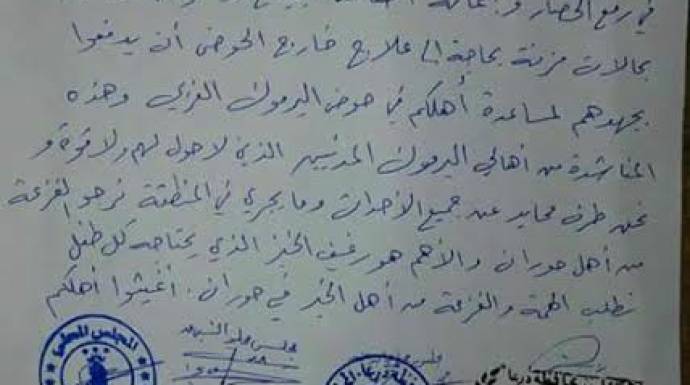 في رفع الحصار
بحالات مزمنة بحاجة إلى علاج خارج الحوض أن يدفعوا
بجهدهم لمساعدة أهلكم في حوض اليرموك الغربي وهذه
المناشدة من أهالي اليرموك المدنيين الذي لا حول لهم ولا قوة و
نحن طرف محايد عن جميع الأحداث وما يجري في المنطقة نرجو الفزعة
من أهل حوران والأهم هو رغيف الخبز الذي يحتاجه كل طفل
نطلب الهمة والفزعة من أهل الخير في حوران. أغيثوا أهلكم
المجلس المحلي